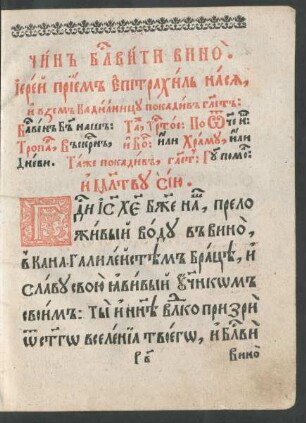 Чи́нъ бл҃ви́ти вино̀.
Іере́й прїе́мъ Е҆пїтрахи́ль на сѧ̀,
и҆ взе́мъ кади́лницу покади́въ гл҃етъ:
Бл҃ве́нъ Бг҃ъ на́шъ: Та́, Трⷭ҇то́е: По Ѿч҃е н:
Тропа́, Въскрⷭ҇нъ, и҆ Бо҃: и҆лѝ Хра́му, и҆лѝ
Дне́ви. Та́же покади́въ, гл҃етъ: Гд҃у помо́:
и҆ мл҃тву сїю̀.
Гд҃и І҆с҃ Хе҃ Бж҃е на́, прело
жи́вый во́ду въ вино̀,
в Ка́на Галиле́йстѣмъ бра́цѣ, и҆
сла́ву свою̀ ꙗ҆ви́вый ᲂу҆ч҃нкѡмъ
свои́мъ: Ты̀ и҆ нн҃ѣ вл҃ко призрѝ
ѿ ст҃гѡ вселе́нїѧ твоегѡ̀, и҆ бл҃вѝ
р҃в вино̀